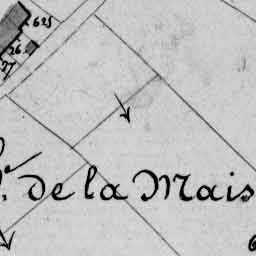 625
26.
27
de la Mais